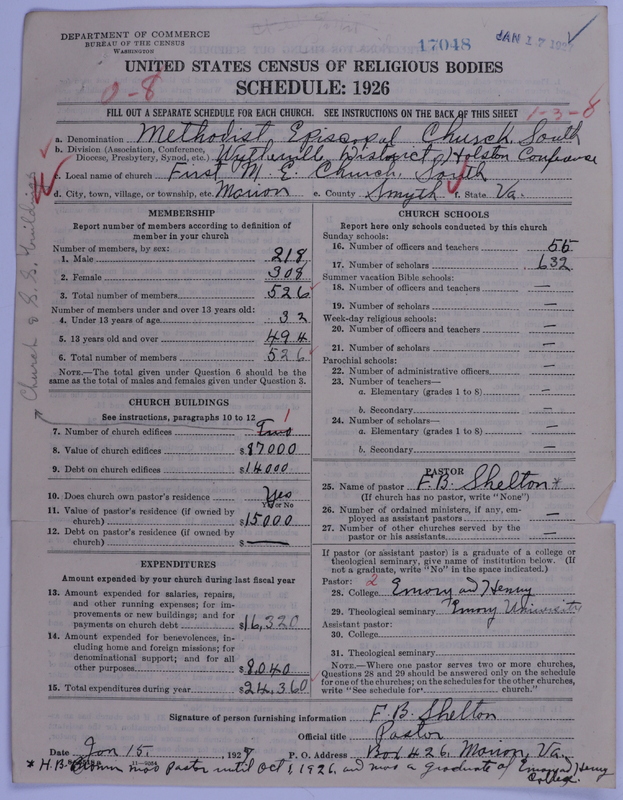 DEPARTMENT OF COMMERCE
BUREAU OF THE CENSUS
WASHINGTON
17048
JAN 17 192
UNITED STATES CENSUS OF RELIGIOUS BODIES
SCHEDULE: 1926
0-8
FILL OUT A SEPARATE SCHEDULE FOR EACH CHURCH. SEE INSTRUCTIONS ON THE BACK OF THIS SHEET
1-3-8
a. Denomination Methodist Episcopal Church, South
b. Division (Association, Conference, Diocese, Presbytery, Synod, etc.) Wytheville District Holston Conference
c. Local name of church First M. E. Church, South
d. City, town, village, or township, etc. Marion e. County Smyth f. State Va.
Church & S. S. Building
MEMBERSHIP
Report number of members according to definition of member in your church
Number of members, by sex:
1. Male 218
2. Female 308
3. Total number of members 526
Number of members under and over 13 years old:
4. Under 13 years of age 32
5. 13 years old and over 494
6. Total number of members 526
NOTE.—The total given under Question 6 should be the same as the total of males and females given under Question 3.
CHURCH BUILDINGS
See instructions, paragraphs 10 to 12
7. Number of church edifices Two 1
8. Value of church edifices $87000
9. Debt on church edifices $14000
10. Does church own pastor's residence Yes
Yes or No
11. Value of pastor's residence (if owned by church) $15000
12. Debt on pastor's residence (if owned by church) $ —
EXPENDITURES
Amount expended by your church during last fiscal year
13. Amount expended for salaries, repairs, and other running expenses; for improvements or new buildings; and for payments on church debt $16,320
14. Amount expended for benevolences, including home and foreign missions; for denominational support; and for all other purposes $8,040
15. Total expenditures during year $24,360
CHURCH SCHOOLS
Report here only schools conducted by this church
Sunday schools:
16. Number of officers and teachers 55
17. Number of scholars 632
Summer vacation Bible schools:
18. Number of officers and teachers —
19. Number of scholars —
Week-day religious schools:
20. Number of officers and teachers —
21. Number of scholars —
Parochial schools:
22. Number of administrative officers —
23. Number of teachers—
a. Elementary (grades 1 to 8) —
b. Secondary —
24. Number of scholars—
a. Elementary (grades 1 to 8) —
b. Secondary —
PASTOR
25. Name of pastor F. B. Shelton *
(If church has no pastor, write "None")
26. Number of ordained ministers, if any, employed as assistant pastors —
27. Number of other churches served by the pastor or his assistants —
If pastor (or assistant pastor) is a graduate of a college or theological seminary, give name of institution below. (If not a graduate, write "No" in the space indicated.)
Pastor: 2
28. College Emory and Henry
29. Theological seminary Emory University
Assistant pastor:
30. College
31. Theological seminary
NOTE.—Where one pastor serves two or more churches, Questions 28 and 29 should be answered only on the schedule for one of the churches; on the schedules for the other churches, write "See schedule for church."
Signature of person furnishing information F. B. Shelton
Official title Pastor
Date Jan 15, 1927 P. O. Address Box 426, Marion, Va.
* H. B. Brown was pastor until Oct 1, 1926, and was a graduate of Emory and Henry College.